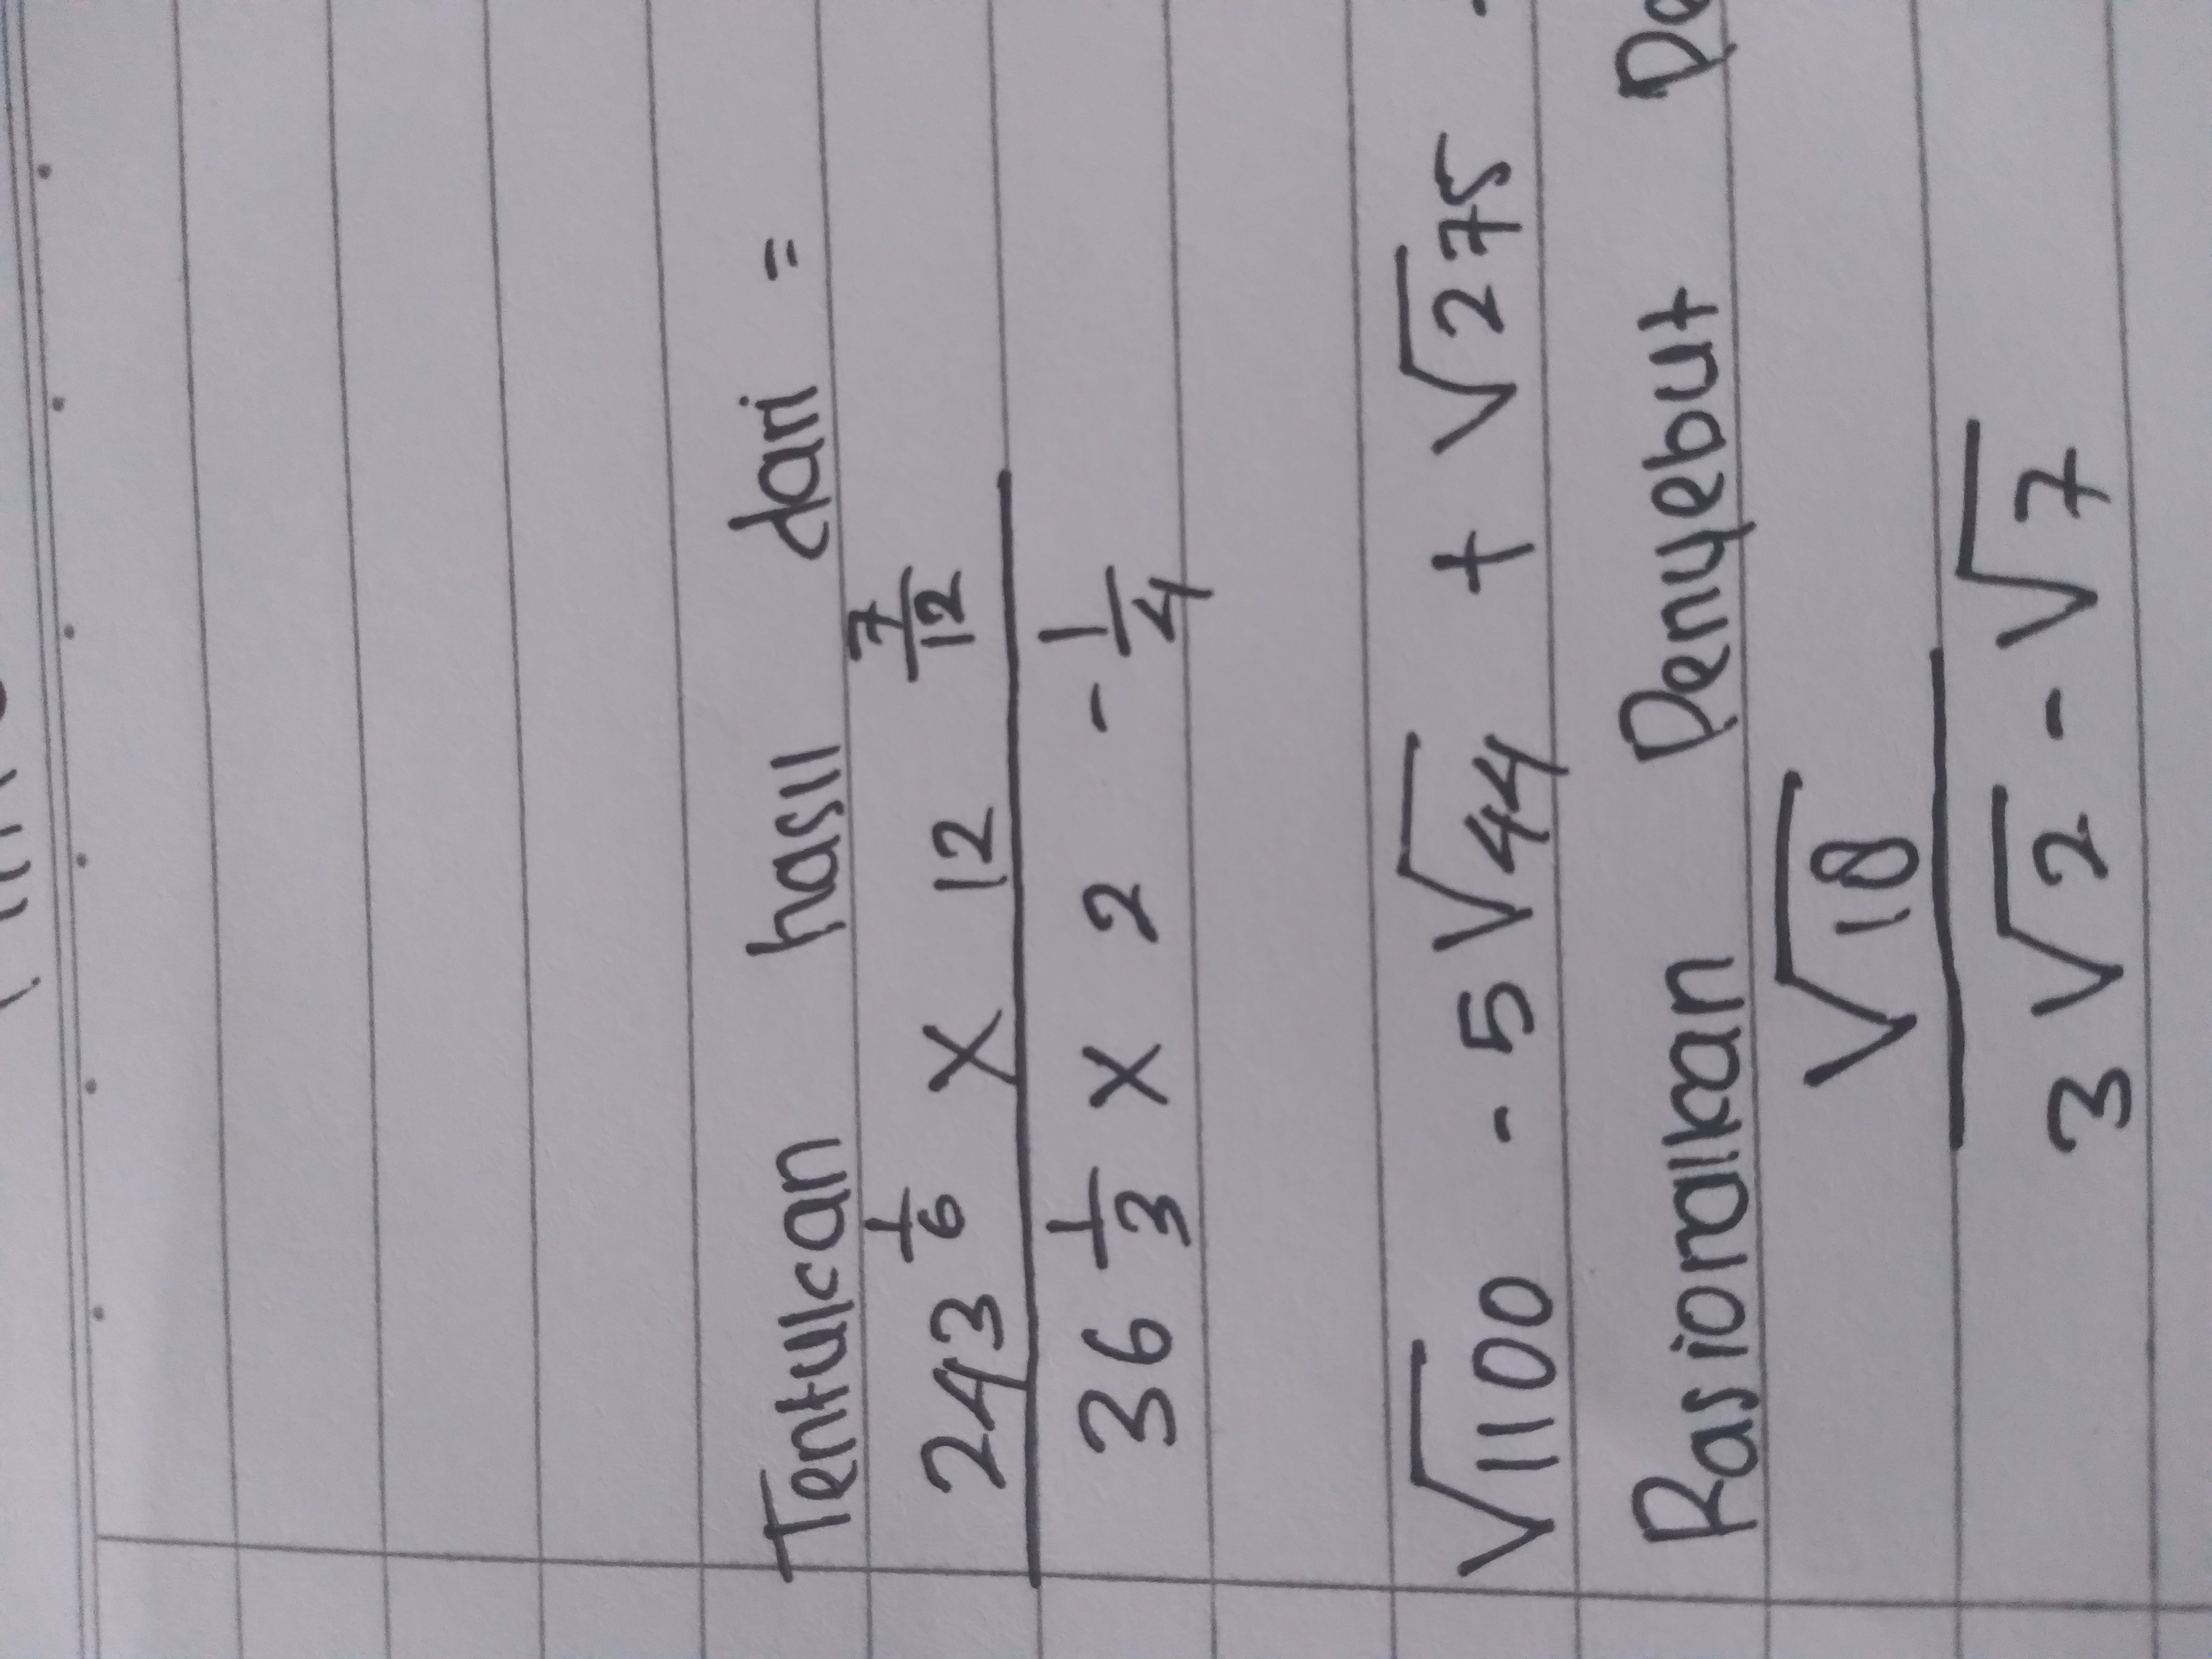 Tentukan hasil dari =
243^(1/6) x 12^(7/12)
36^(1/3) x 2^(-1/4)
√1100 - 5√44 + √275
Rasionalkan Penyebut
√18
3√2 - √7